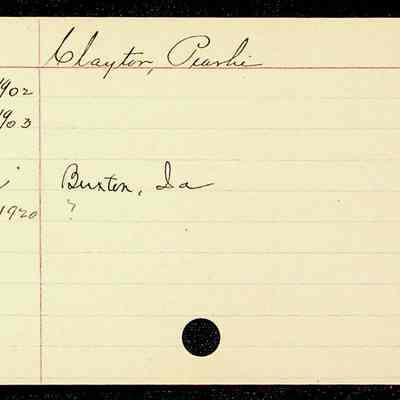 Clayton, Pearlie
1902
1903
Buxton, Ia
1920 ?